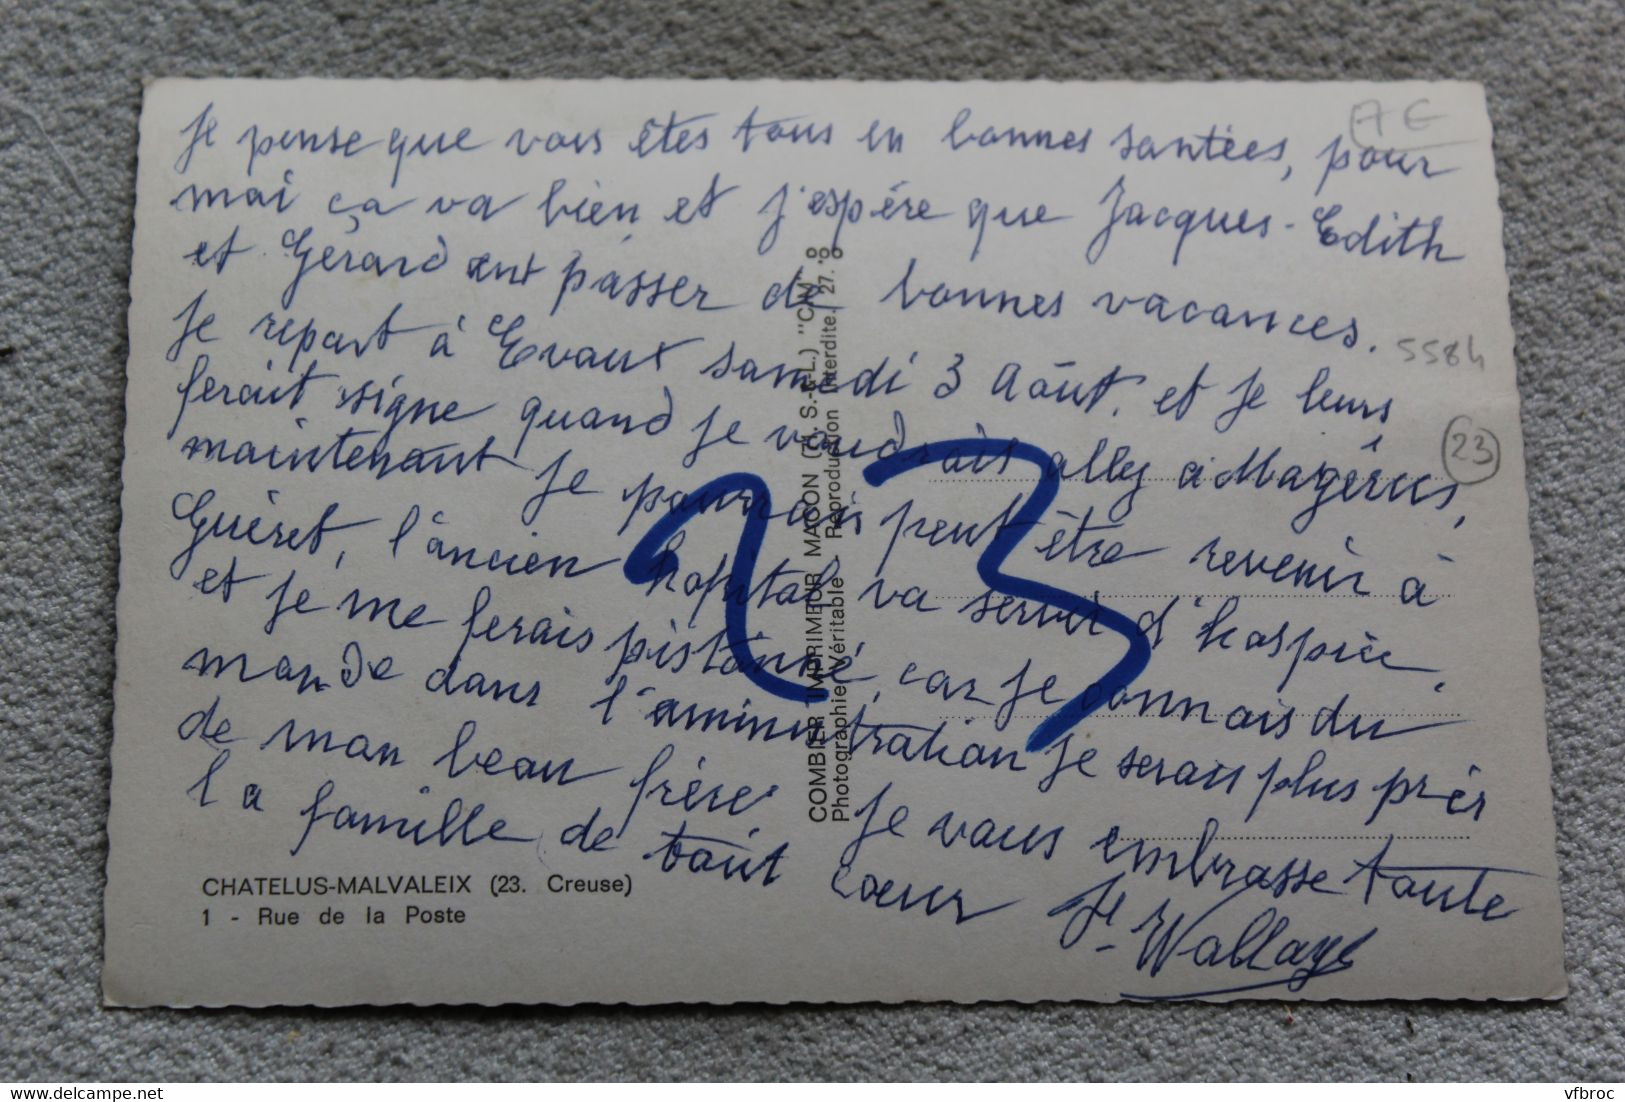 Je pense que vous êtes tous en bonnes santées, pour
moi ça va bien et j'espère que Jacques - Edith
et Gérard ont passer de bonnes vacances.
Je repart à Evaux samedi 3 Août. et je leurs
ferait signe quand je voudrais aller à
maintenant je pourrai peut être revenir à
Guéret, l'ancien hopital va servir d'hospice,
et je me ferais pistonné, car je connais du
monde dans l'aministration je serais plus près
de mon beau frère. Je vous embrasse toute
la famille de tout cœur
Wallaye
AE
5584
23
23
CHATELUS-MALVALEIX (23. Creuse)
1 - Rue de la Poste
COMBIER IMPRIMEUR MACON (S.-&-L.) "CIM"
Photographie Véritable - Reproduction Interdite.
delcampe.net
vfbroc